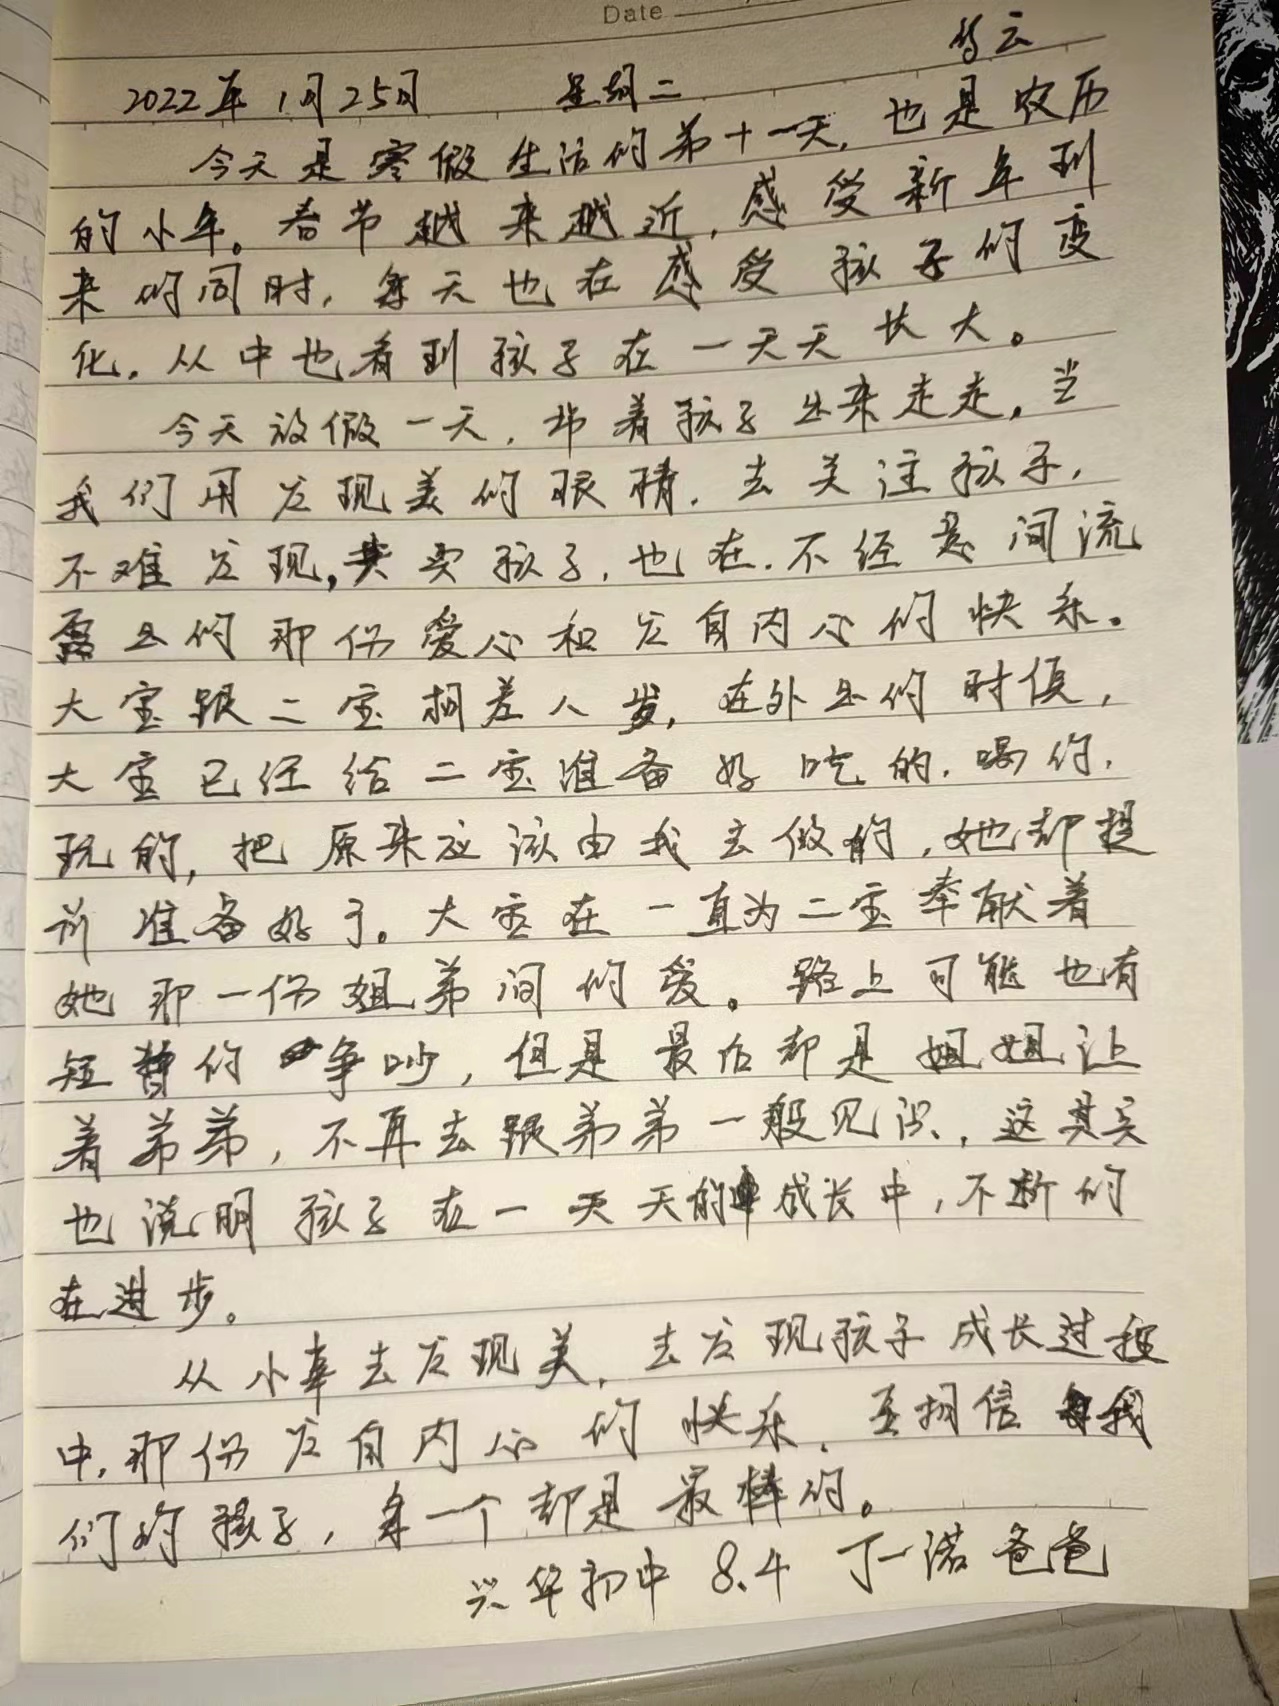 Date
多云
2022年1月25日 星期二
今天是寒假生活的第十一天,也是农历
的小年。春节越来越近,感受新年到
来的同时,每天也在感受孩子的变
化,从中也看到孩子在一天天长大。
今天放假一天,带着孩子出来走走。当
我们用发现美的眼睛,去关注孩子,
不难发现,其实孩子,也在,不经意间流
露出的那份爱心和发自内心的快乐。
大宝跟二宝相差八岁,在外出的时候,
大宝已经给二宝准备好吃的,喝的,
玩的,把原来应该由我去做的,她却提
前准备好了。大宝在一直为二宝奉献着
她那一份姐弟间的爱。路上可能也有
短暂的争吵,但是最后都是姐姐让
着弟弟,不再去跟弟弟一般见识,这其实
也说明孩子在一天天的成长中,不断的
在进步。
从小事去发现美,去发现孩子成长过程
中,那份发自内心的快乐,要相信我
们的孩子,每一个都是最棒的。
兴华初中 8.4 丁一诺爸爸